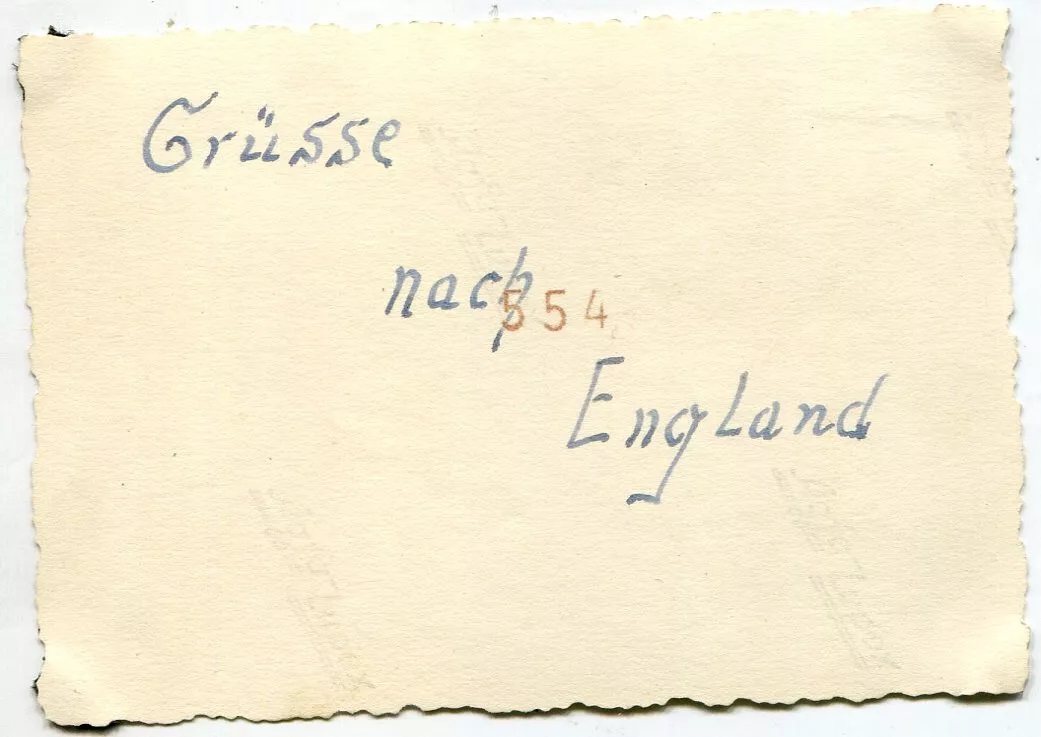 Grüsse
nach
554
England